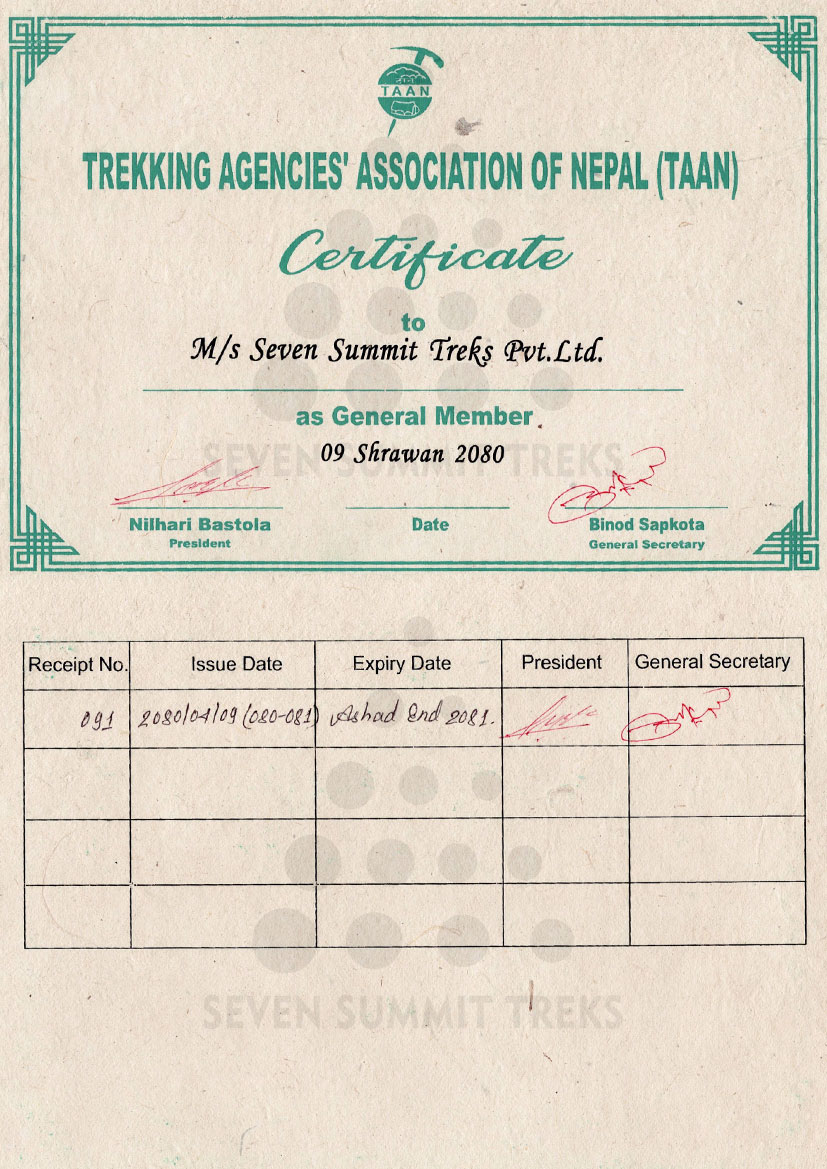 TAAN
TREKKING AGENCIES' ASSOCIATION OF NEPAL (TAAN)
Certificate
to
M/s Seven Summit Treks Pvt.Ltd.
as General Member
09 Shrawan 2080
SEVEN SUMMIT TREKS
Nilhari Bastola Date Binod Sapkota
President General Secretary
Receipt No. Issue Date Expiry Date President General Secretary
091 2080/04/09 (080-081) Ashad End 2081.
SEVEN SUMMIT TREKS